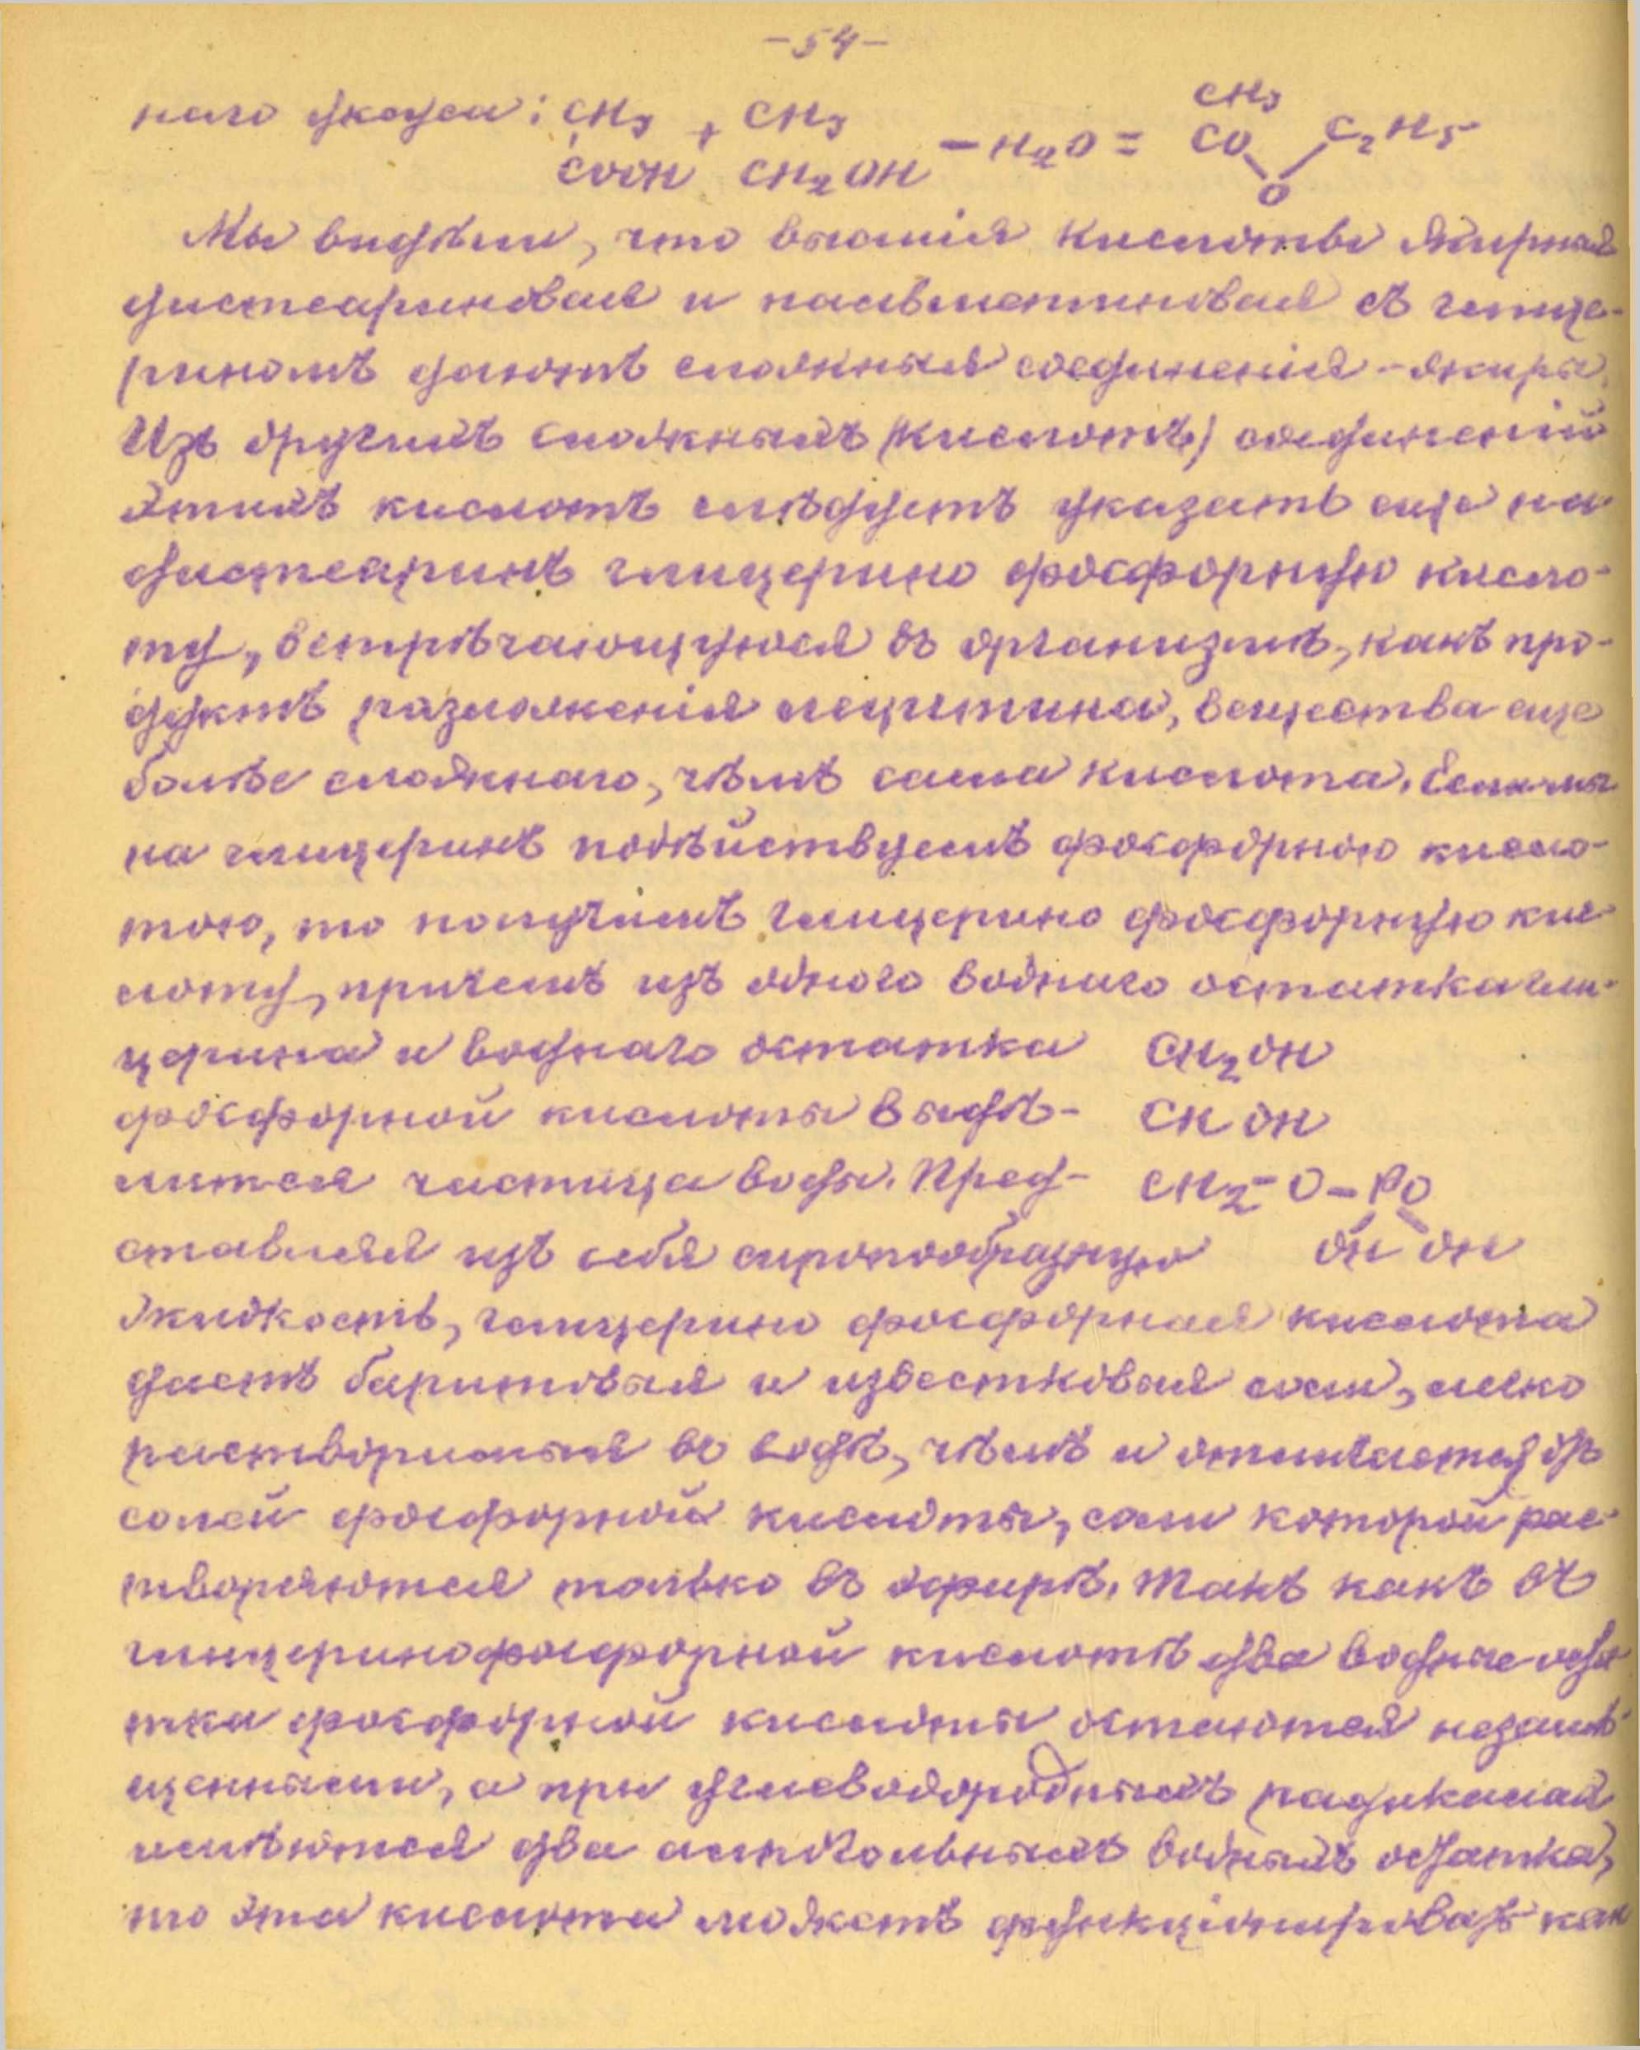 -54-
наго уксуса: CH3 + CH3 - H2O = CH3
COOH CH2OH CO C2H5
O
Мы видѣли, что высшія кислоты жирныя
дистеариновая и пальметиновая съ глице-
риномъ даютъ сложныя соединенія - жиры.
Изъ другихъ сложныхъ (кислотъ) соединеній
этихъ кислотъ слѣдуетъ указать еще на
дистеаринъ глицерино фосфорную кисло-
ту, встрѣчающуюся въ организмѣ, какъ про-
дуктъ разложенія лецитина, вещества еще
болѣе сложнаго, чѣмъ сама кислота. Если мы
на глицеринъ подѣйствуемъ фосфорною кисло-
тою, то получимъ глицерино фосфорную кис-
лоту, причемъ изъ одного воднаго остатка гли-
церина и воднаго остатка CH2OH
фосфорной кислоты выдѣ- CH OH
лится частица воды. Пред- CH2-O-PO
ставляя изъ себя сиропообразную OH OH
жидкость, глицерино фосфорная кислота
даетъ баритовыя и известковыя соли, легко
растворимыя въ водѣ, чѣмъ и отличается отъ
солей фосфорной кислоты, соли которой рас-
творяются только въ эфирѣ. Такъ какъ въ
глицеринофосфорной кислотѣ два водные оста
тка фосфорной кислоты остаются незамѣ-
щенными, а при углеводородныхъ радикалах
имѣются два алкогольныхъ водныхъ остатка,
то эта кислота можетъ функціонировать как